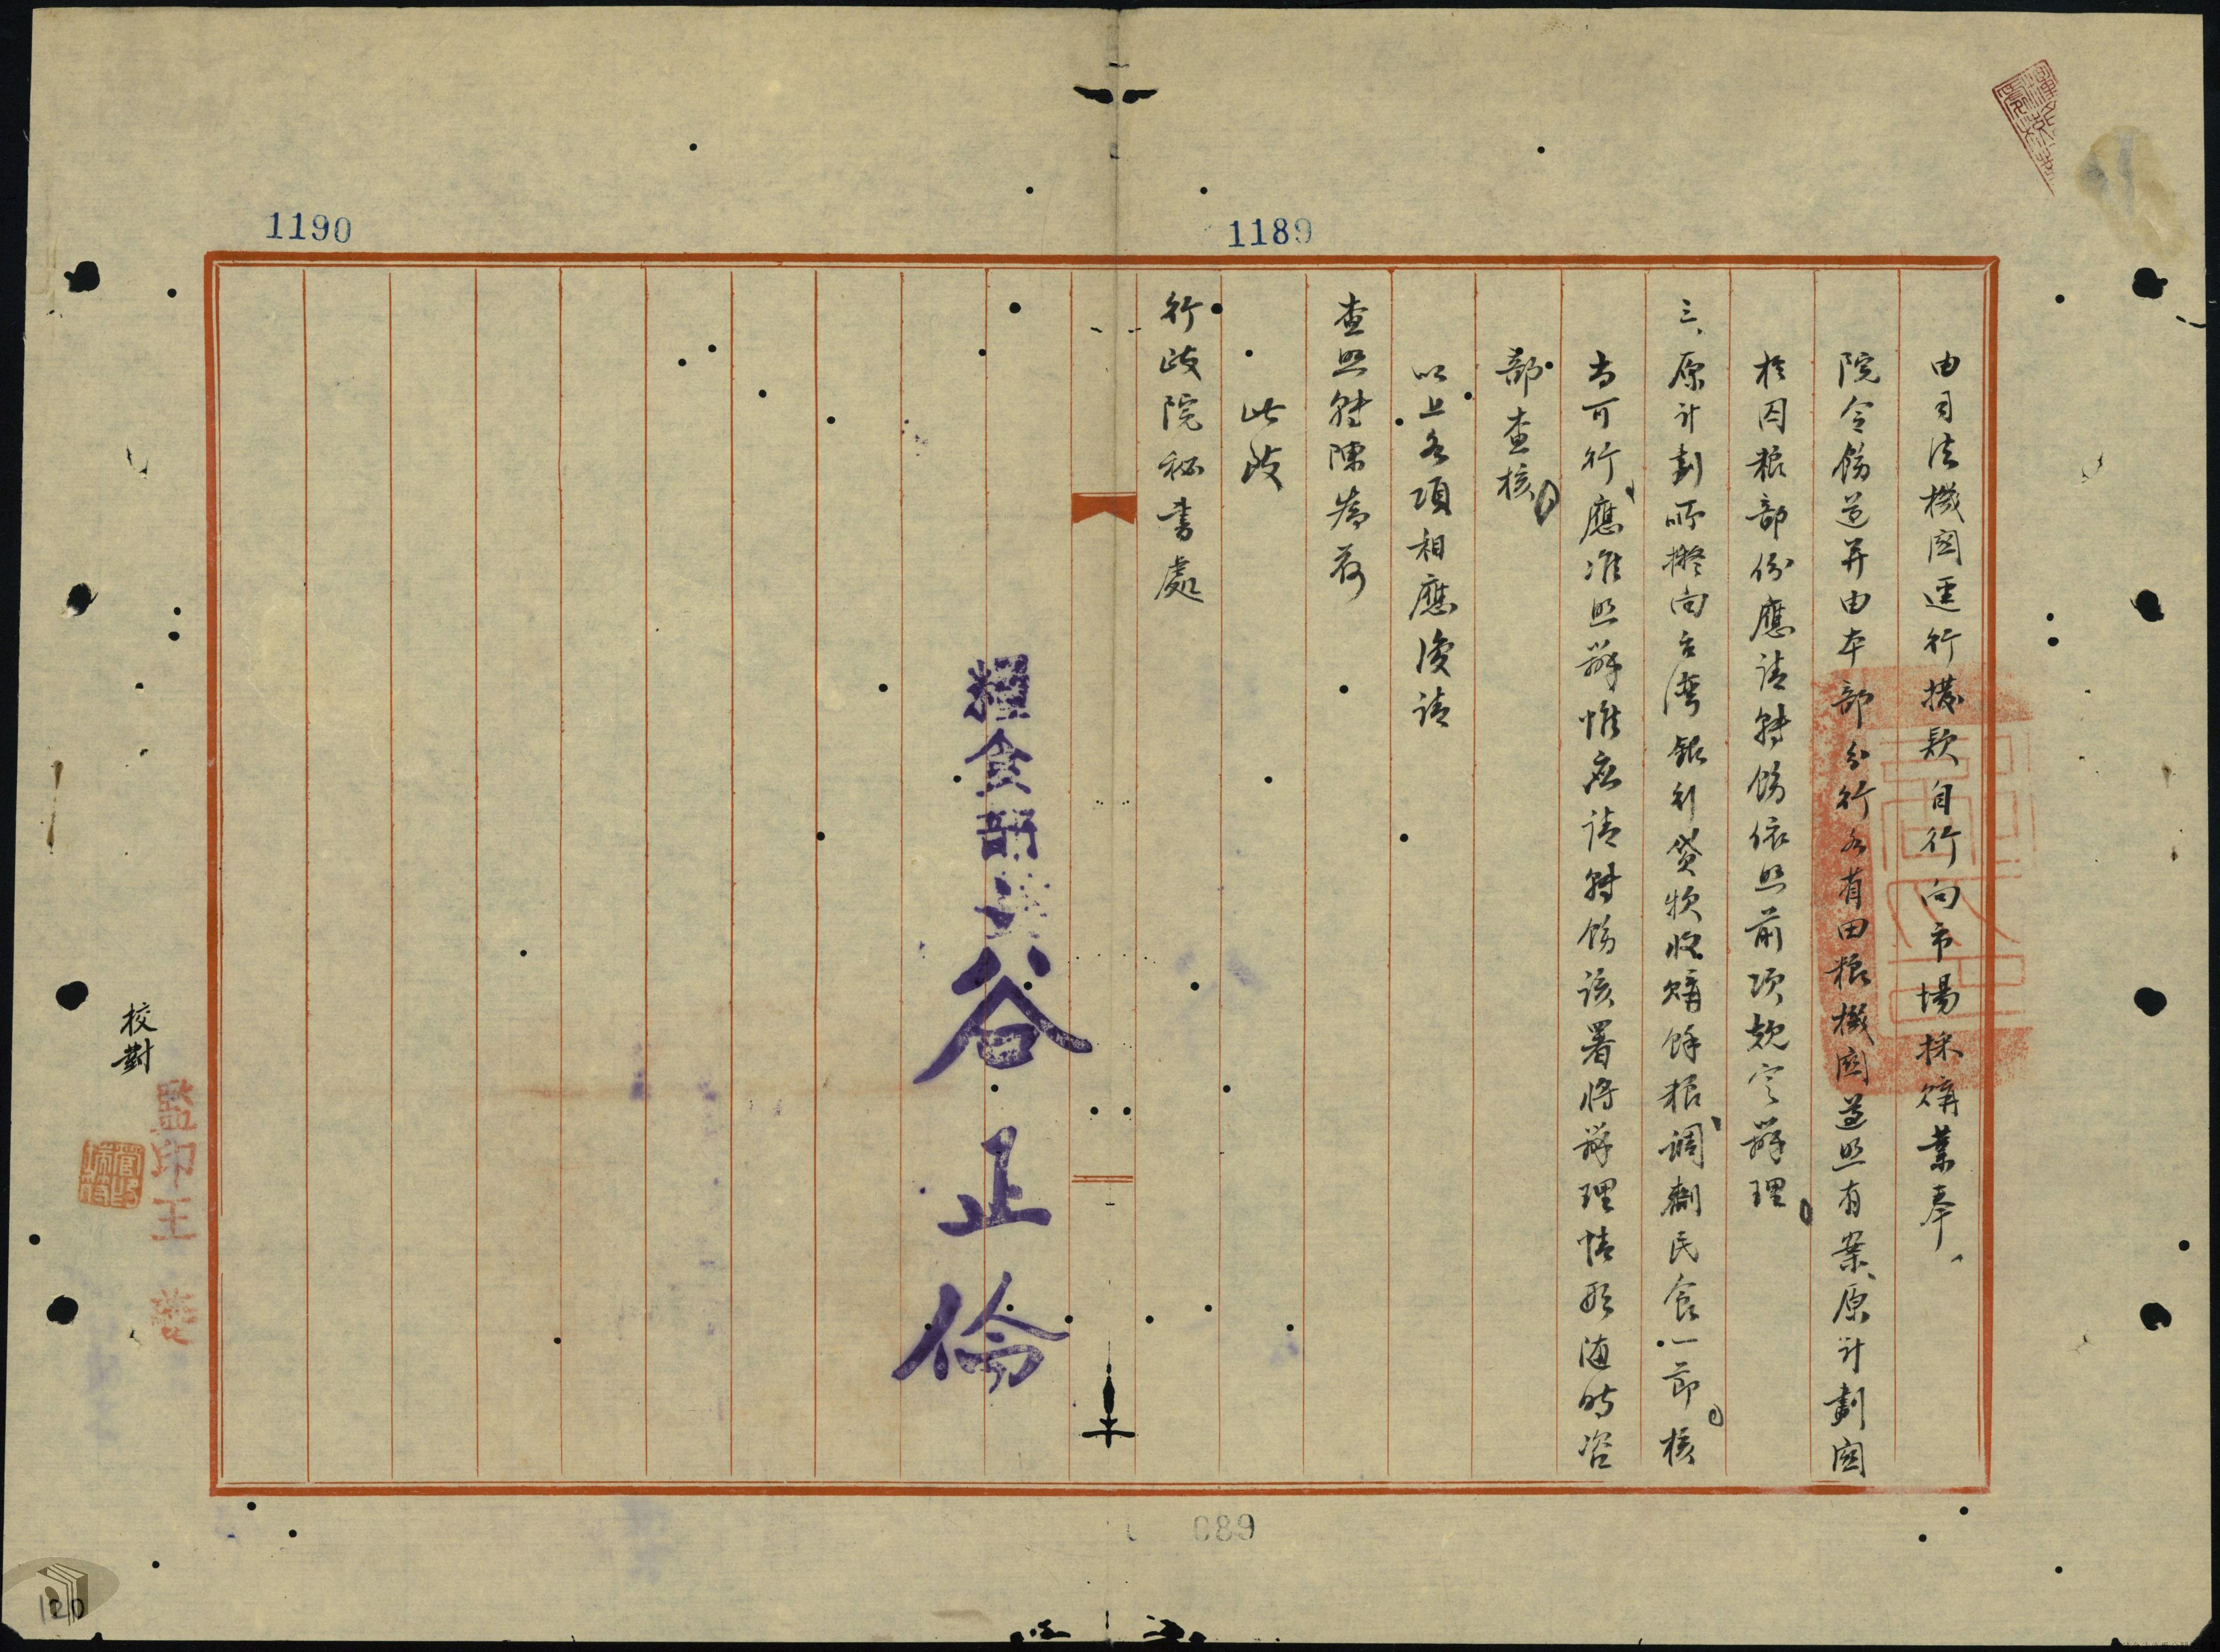 1189
由司法機関逕行撥款自行向市場採購業奉
院令飭遵并由本部分行各有田粮機関遵照有案、原計劃関
於囚粮部份應請轉飭依照前項規定辦理。
三、原計劃所擬向台灣銀行貸款收購餘粮、調劑民食一節。核
尚可行、應准照辦惟應請轉飭該署將辦理情形随時咨
部查核。
以上各項相應復請
查照轉陳為荷
此致
行政院秘書處
糧食部部長谷正倫
1190
校對
監印王
089
120